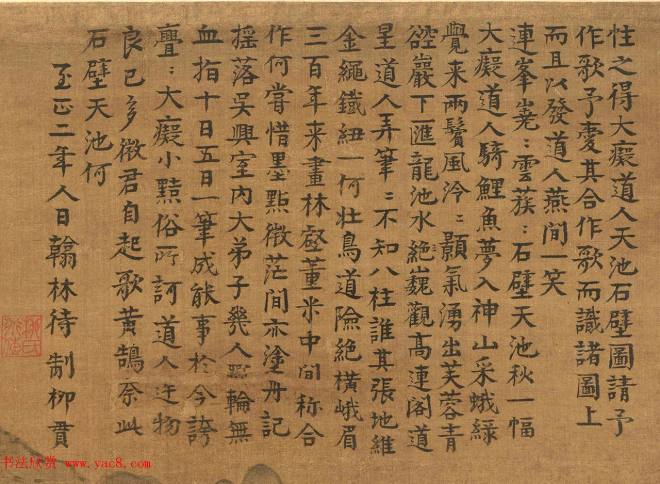 性之得大癡道人天池石壁圖請予
作歌予愛其合作歌而識諸圖上
而且以發道人燕間一笑
連峯嶤〻雲蔟〻石壁天池秋一幅
大癡道人騎鯉魚夢入神山采蛾緑
覺來兩鬢風泠〻顥氣湧出芙蓉青
硿巖下匯龍池水絶巘觀高連閣道
呈道人弄筆〻不知八柱誰其張地維
金繩鐵紐一何壯鳥道險絶橫峨眉
三百年來畫林壑董米中間称合
作何嘗惜墨點微茫間亦塗丹記
揺落吳興室內大弟子幾人輪無
血指十日五日一筆成能事於今誇
亹〻大癡小黠俗所訶道人迕物
良已多徵君自起歌黃鵠奈此
石壁天池何
至正二年人日翰林待制柳貫
书法欣赏 www.yac8.com